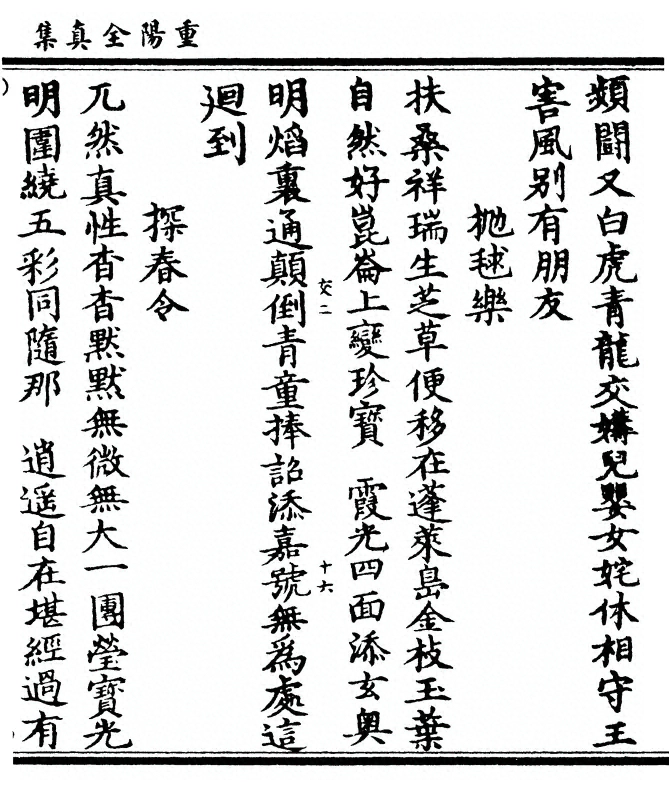 重陽全真集
頻鬬又白虎青龍交媾兒嬰女姹休相守王
害風别有朋友
抛毬樂
扶桑祥瑞生芝草便移在蓬萊島金枝玉葉
自然好崑崙上變珍寶　霞光四面添玄奥
交二　十六
明熖裏通顛倒青童捧詔添嘉號無爲處這
廻到
探春令
兀然真性杳杳默默無微無大一團瑩寶光
明圍繞五彩同隨那　逍遥自在堪經過有